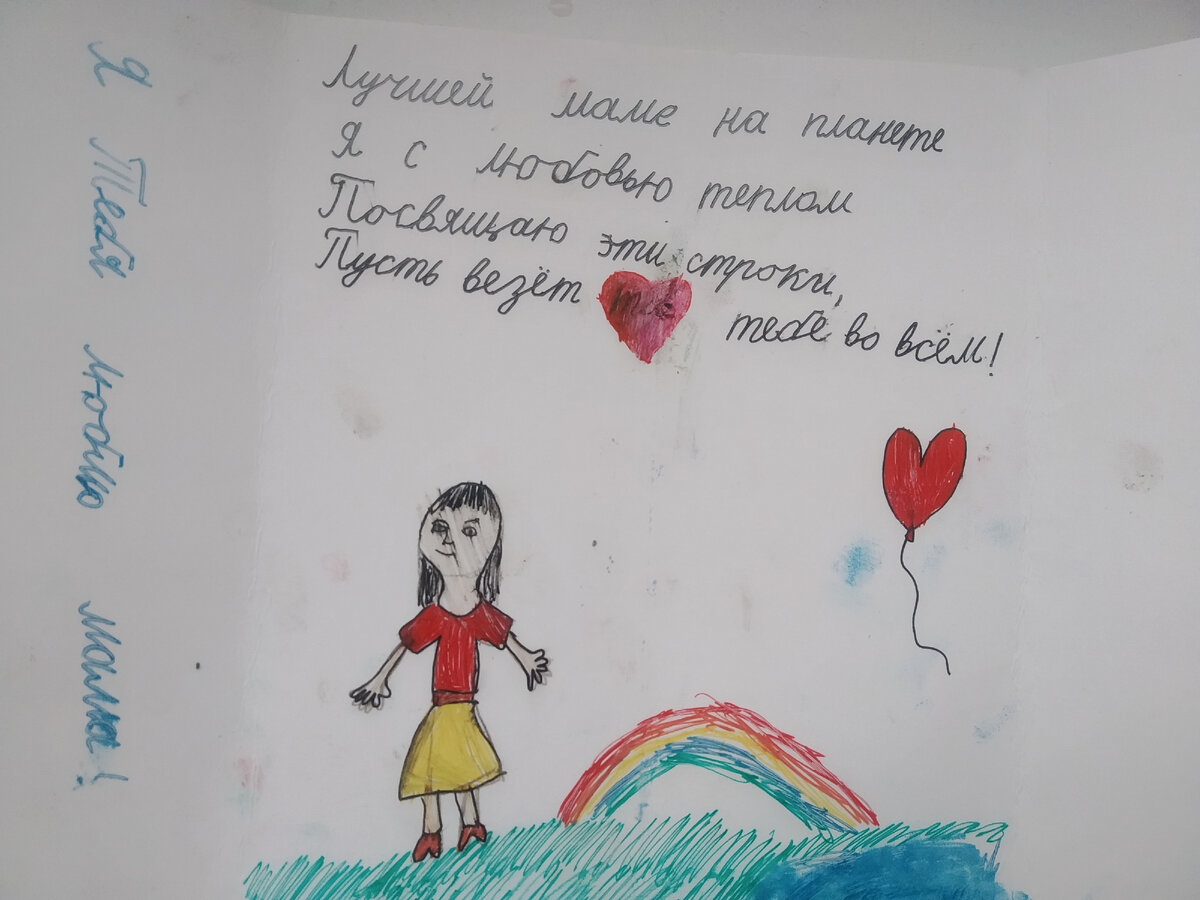 Лучшей маме на планете
Я с любовью теплом
Посвящаю эти строки,
Пусть везёт тебе во всём!
Я Тебя люблю мама!